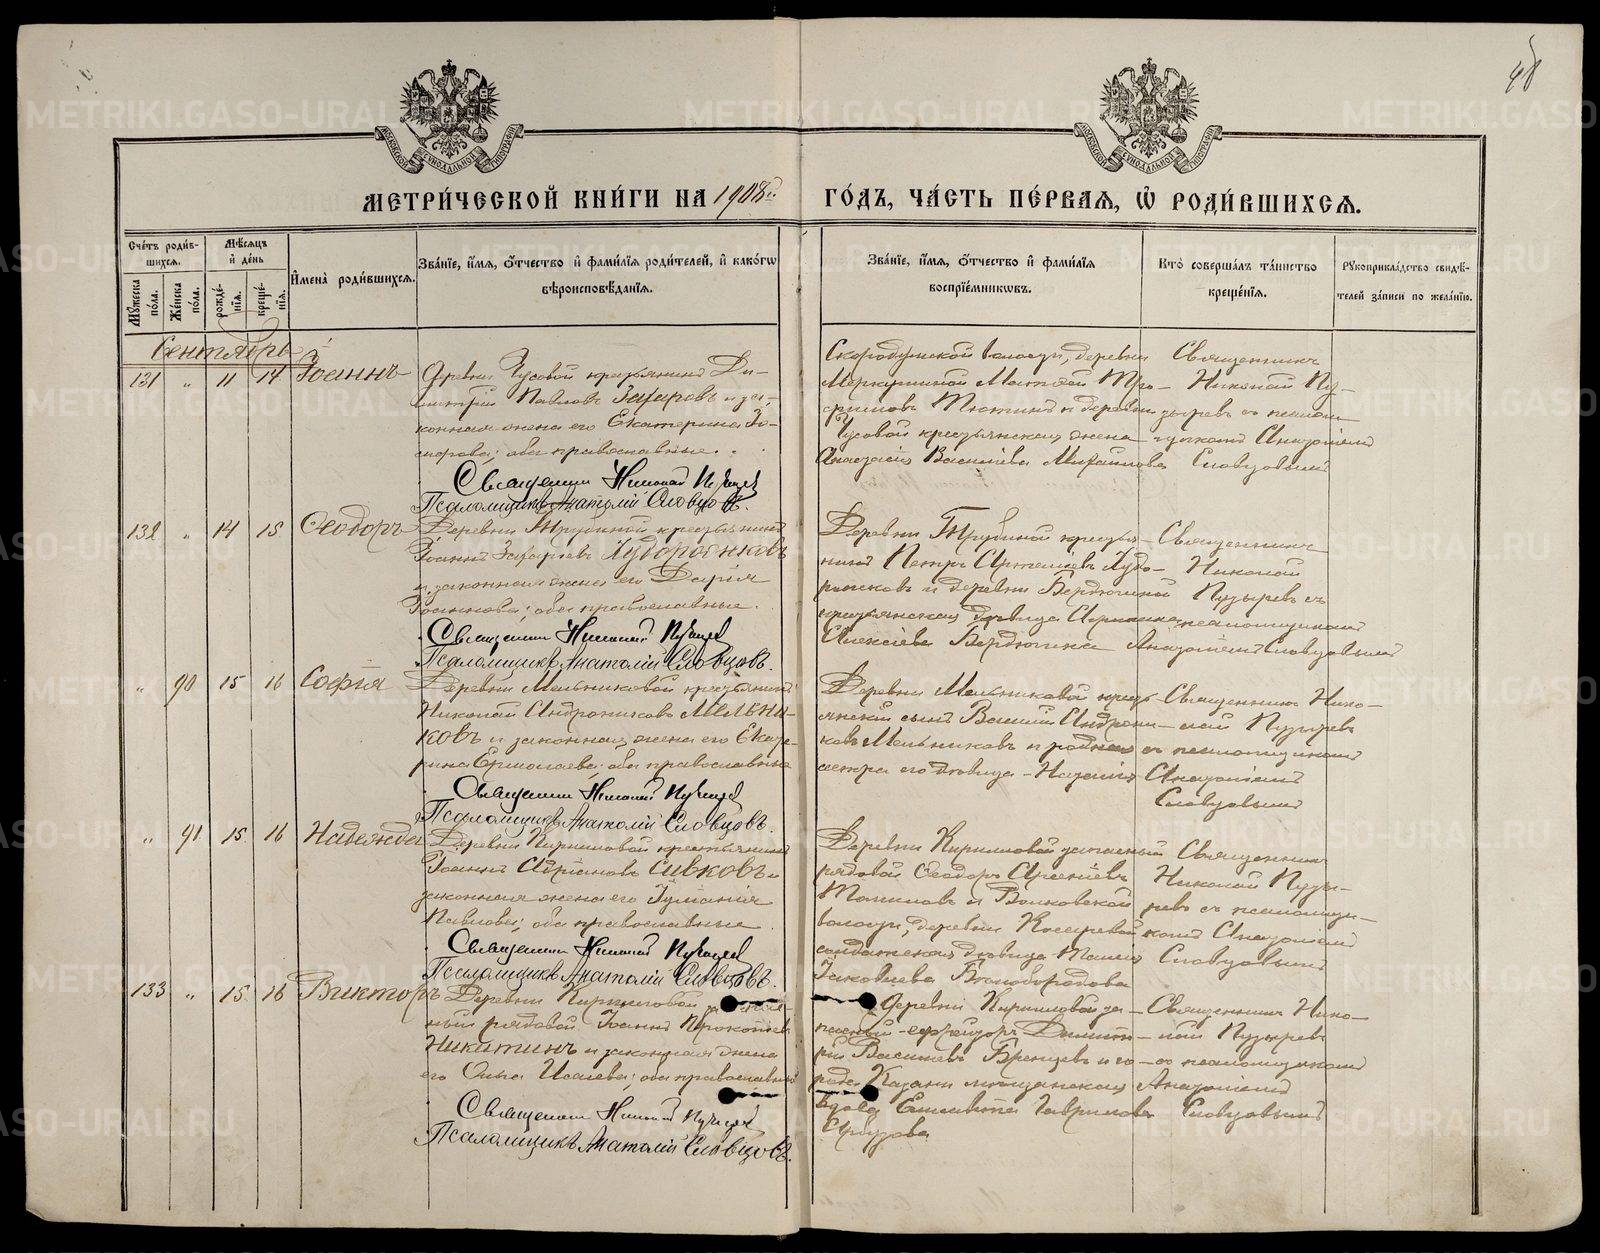 48
МОСКОВСКОЙ СУНОДАЛЬНОЙ ТИПОГРАФІИ
МОСКОВСКОЙ СУНОДАЛЬНОЙ ТИПОГРАФІИ
МЕТРИ́ЧЕСКОЙ КНИ́ГИ НА 1908й ГО́ДЪ, ЧА́СТЬ ПЕ́РВАѦ, Ѡ҆ РОДИ́ВШИХСѦ.
Сче́тъ роди́в-
шихсѧ.
Мꙋ́жеска по́ла.
Же́нска по́ла.
Мѣ́сѧцъ
и҆ де́нь
рожде́-
нїѧ.
креще́-
нїѧ.
И҆мена̀ роди́вшихсѧ.
Зва́нїе, и҆́мѧ, ѻ҆́тчество и҆ фами́лїѧ роди́телей, и҆ како́гѡ
вѣроисповѣ́данїѧ.
Зва́нїе, и҆́мѧ, ѻ҆́тчество и҆ фами́лїѧ
воспрїе́мникѡвъ.
Кто̀ соверша́лъ та́инство
креще́нїѧ.
Рꙋкоприкла́дство свидѣ́-
телей за́писи по жела́нїю.
Сентябрь
131 „ 11 14 Іоаннъ
Деревни Чусовой крестьянинъ Ди-
митрій Павловъ Захаровъ и за-
конная жена его Екатерина
оба православные.
Священникъ Николай Пузырев
Псаломщикъ Анатолій Словцовъ.
Скородумской волости, деревни
Меркушиной Матвей Тро-
фимовъ и деревни
Чусовой крестьянская жена
Анастасія Васильева Михайлова
Священникъ
Николай Пу-
зыревъ съ псалом-
щикомъ Анатоліемъ
Словцовымъ
132 „ 14 15 Ѳеодоръ
Деревни Трубиной крестьянинъ
Іоаннъ Захаріевъ Худорожковъ
и законная жена его Дарія
Іоаннова; оба православные.
Священникъ Николай Пузырев
Псаломщикъ Анатолій Словцовъ.
Деревни Трубиной крестья-
нинъ Петръ Артеміевъ Худо-
рожковъ и деревни Бердюгиной
крестьянская дѣвица
Алексіева Бердюгина
Священникъ
Николай
Пузыревъ съ
псаломщикомъ
Анатоліемъ Словцовымъ
„ 90 15 16 Софія
Деревни Мельниковой крестьянинъ
Николай Андрониковъ Мельни-
ковъ и законная жена его Екате-
рина Ермолаева; оба православные
Священникъ Николай Пузырев
Псаломщикъ Анатолій Словцовъ.
Деревни Мельниковой кресть-
янскій сынъ Василій Андрони-
ковъ Мельниковъ и родная
сестра его дѣвица
Священникъ Нико-
лай Пузыревъ
съ псаломщикомъ
Анатоліемъ
Словцовымъ
„ 91 15 16 Надежда
Деревни Кирилловой крестьянинъ
Іоаннъ Адріановъ Сивковъ и
законная жена его Іуліанія
Павлова; оба православные
Священникъ Николай Пузырев
Псаломщикъ Анатолій Словцовъ.
Деревни Кирилловой запасный
рядовой Ѳеодоръ Арсеніевъ
и Волковской
волости, деревни
солдатская дѣвица
Іаковлева Белобородова
Священникъ
Николай Пузы-
ревъ съ псаломщи-
комъ Анатоліемъ
Словцовымъ
133 „ 15 16 Викторъ
Деревни Кирилловой запас-
ный рядовой Іоаннъ Прокопіев
Никитинъ и законная жена
его Ольга Исаева; оба православные
Священникъ Николай Пузырев
Псаломщикъ Анатолій Словцовъ.
Деревни Кирилловой за-
пасный ефрейторъ Димит-
рій Васильевъ и го-
рода Казани мѣщанская
вдова Елисавета Гаврилова
Арбузова
Священникъ Нико-
лай Пузыревъ
съ псаломщикомъ
Анатоліемъ
Словцовымъ
METRIKI.GASO-URAL.RU